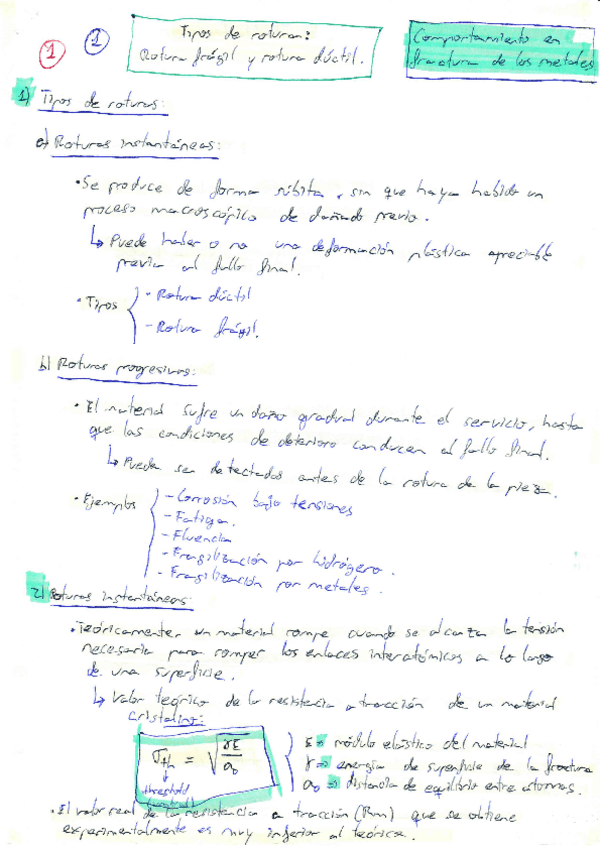 1 1
Tipos de roturas:
Rotura frágil y rotura dúctil.
Comportamiento en
fractura de los metales
1) Tipos de roturas:
a) Roturas instantáneas:
• Se produce de forma súbita, sin que haya habido un
proceso macroscópico de dañado previo.
↳ Puede haber o no una deformación plástica apreciable
previa al fallo final.
• Tipos
- Rotura dúctil
- Rotura frágil.
b) Roturas progresivas:
• El material sufre un daño gradual durante el servicio, hasta
que las condiciones de deterioro conducen al fallo final.
↳ Pueden ser detectados antes de la rotura de la pieza.
• Ejemplos
- Corrosión bajo tensiones
- Fatiga.
- Fluencia
- Fragilización por hidrógeno.
- Fragilización por metales.
2) Roturas instantáneas:
• Teóricamente, un material rompe cuando se alcanza la tensión
necesaria para romper los enlaces interatómicos a lo largo
de una superficie.
↳ Valor teórico de la resistencia a tracción de un material
cristalino:
σth = √(γE/a₀)
threshold
E ⇒ módulo elástico del material
γ ⇒ energía de superficie de la fractura
a₀ ⇒ distancia de equilibrio entre átomos.
• El valor real de la resistencia a tracción (Rm) que se obtiene
experimentalmente es muy inferior al teórico.